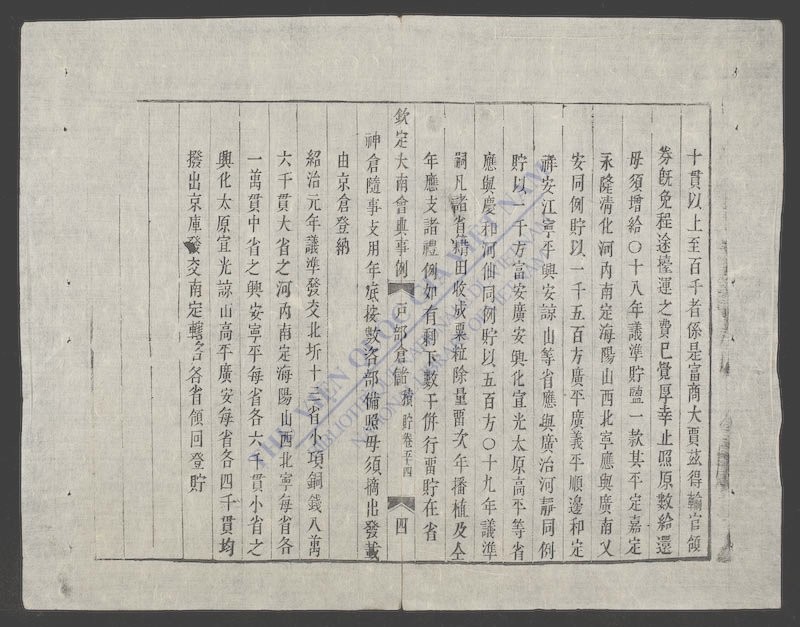 十貫以上至百千者係是富商大賈茲得輸官領
券既免程途擡運之費已覺厚幸止照原數給還
毋須增給〇十八年議準貯鹽一款其平定嘉定
永隆清化河內南定海陽山西北寧應與廣南乂
安同例貯以一千五百方廣平廣義平順邊和定
祥安江寧平興安諒山等省應與廣治河靜同例
貯以一千方富安廣安興化宣光太原高平等省
應與慶和河仙同例貯以五百方〇十九年議準
嗣凡諸省耤田收成粟粒除量留次年播植及仝
年應支諸禮例如有剩下數干併行留貯在省
欽定大南會典事例 戶部倉儲 積貯卷五十四 四
神倉隨事支用年底按數咨部備照毋須摘出發載
由京倉登納
紹治元年議準發交北圻十三省小項銅錢八萬
六千貫大省之河內南定海陽山西北寧每省各
一萬貫中省之興安寧平每省各六千貫小省之
興化太原宣光諒山高平廣安每省各四千貫均
撥出京庫發交南定轄各省領回登貯
THU VIEN QUOC GIA VIET NAM